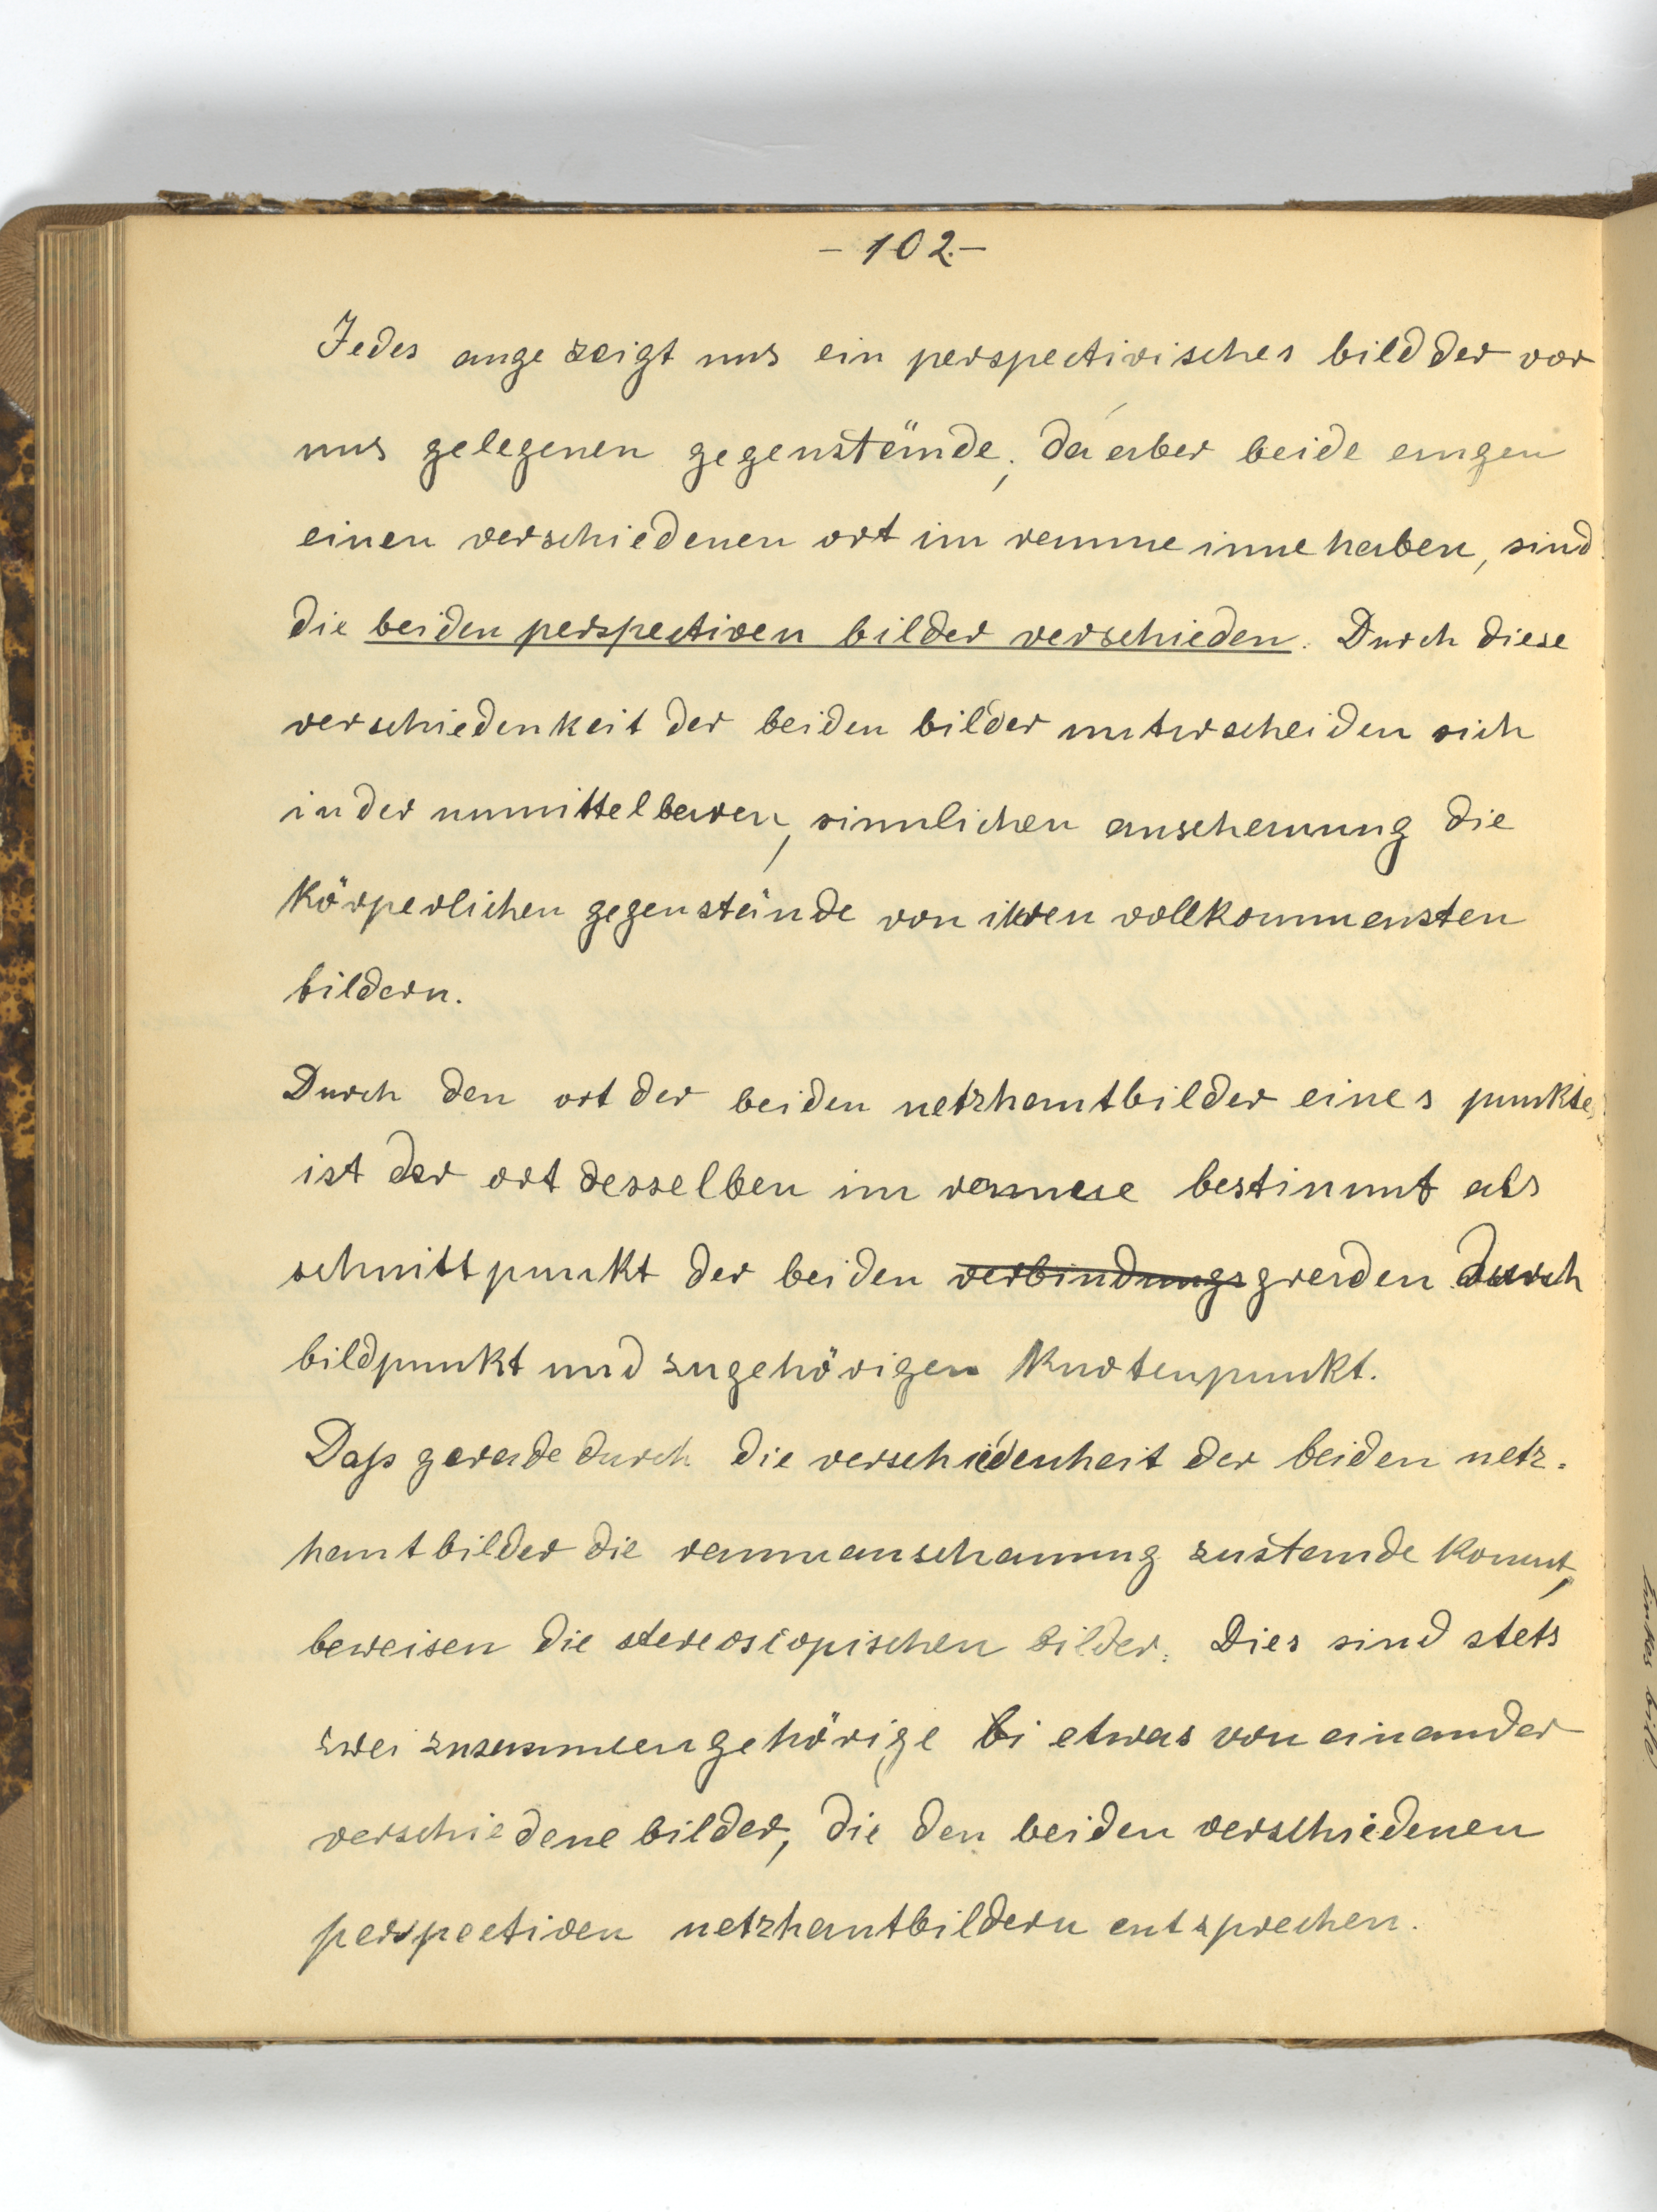 – 102. –
Jedes auge zeigt uns ein perspectivisches bild der vor
uns gelegenen gegenstände; da aber beide augen
einen verschiedenen ort im raume inne haben, sind
die beiden perspectiven bilder verschieden. Durch diese
verschiedenkeit der beiden bilder unterscheiden sich
in der unmittelbaren, sinnlichen anschauung die
körperlichen gegenstände von ihren vollkommensten
bildern.
Durch den ort der beiden netzhautbilder eines punktes
ist der ort desselben im raume bestimmt als
schnittpunkt der beiden verbindungsgraden durch
bildpunkt und zugehörigen knotenpunkt.
Daß gerade durch die verschiedenheit der beiden netz-
hautbilder die raumanschauung zustande kommt,
beweisen die stereoscopischen bilder. Dies sind stets
zwei zusammengehörige bi etwas von einander
verschiedene bilder, die den beiden verschiedenen
perspectiven netzhautbildern entsprechen.
linkes bild